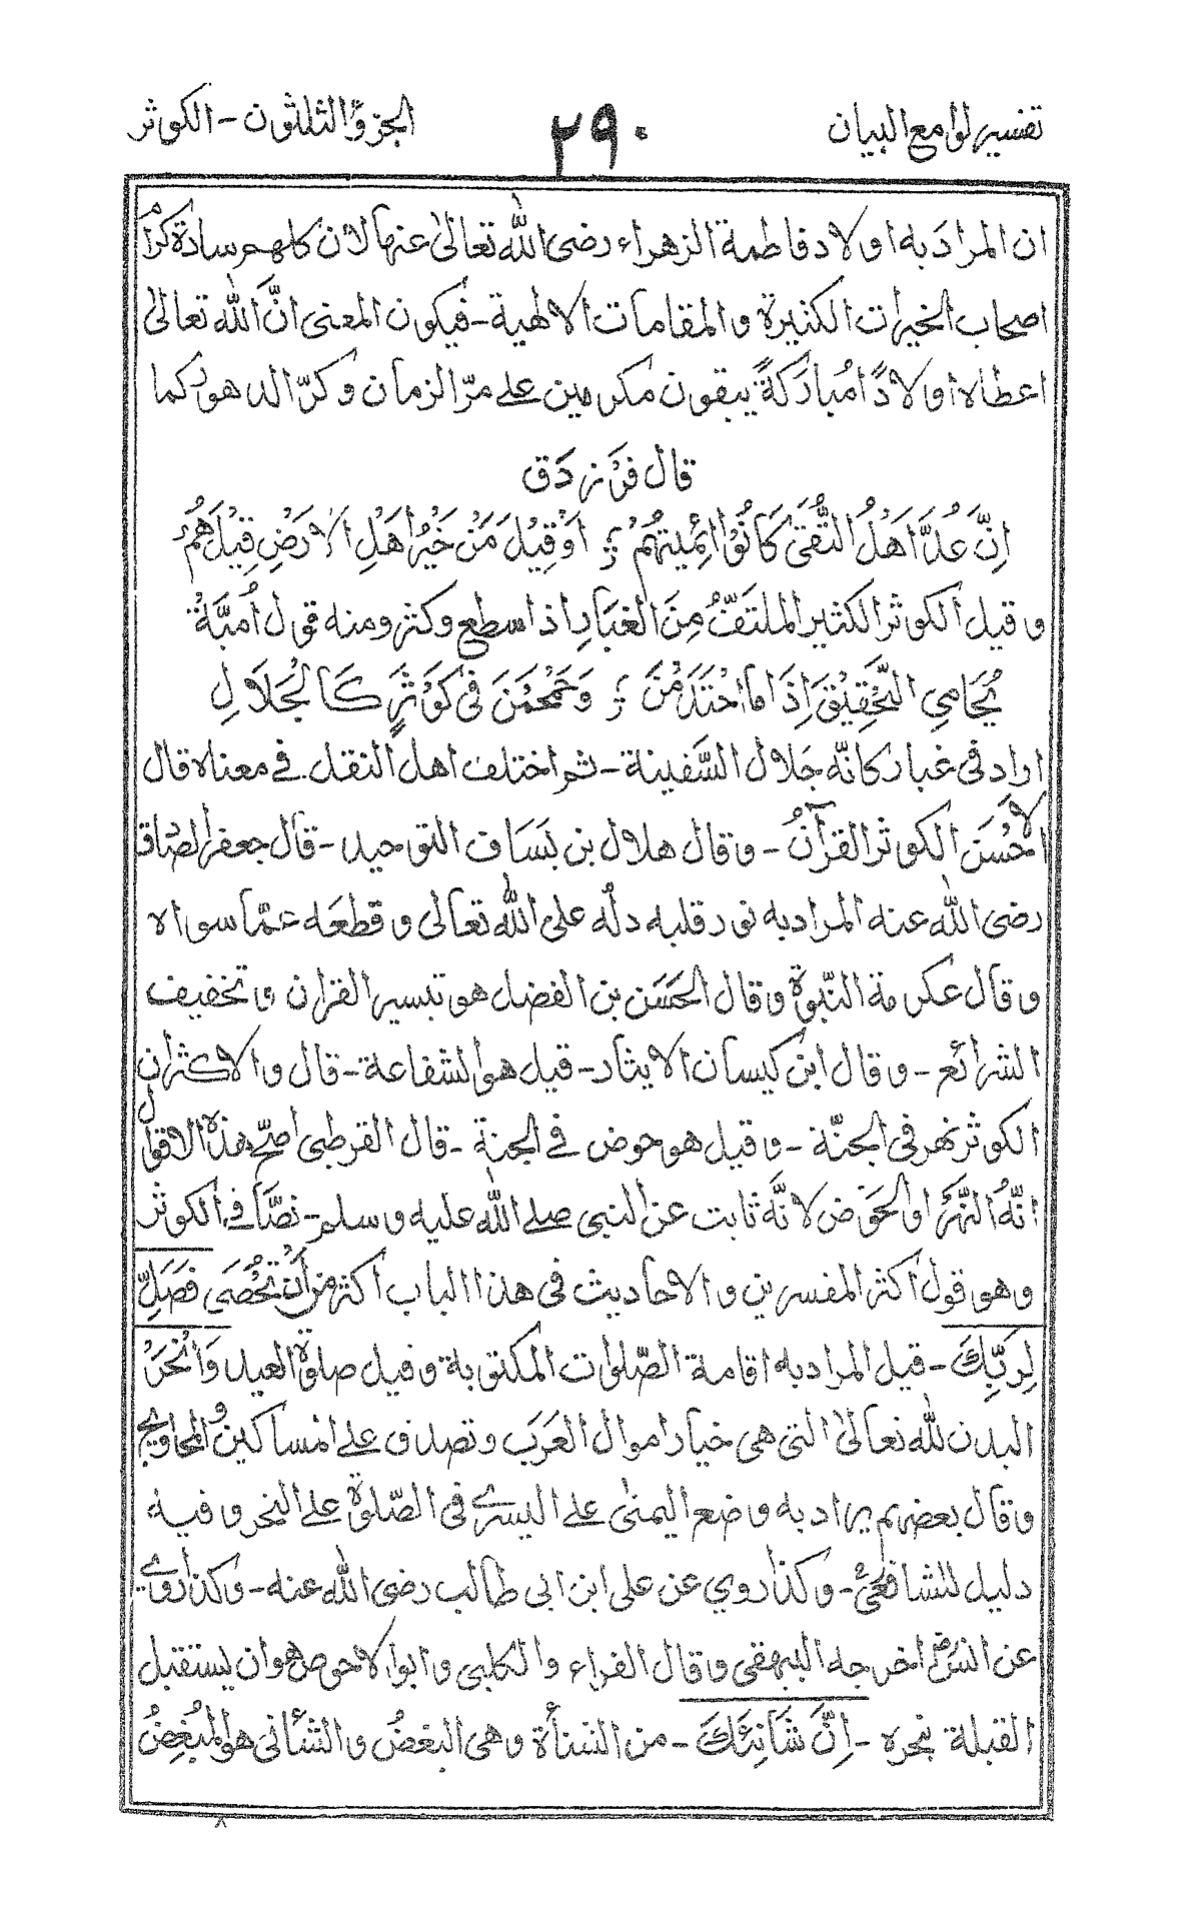 تفسير لوامع البيان
٢٩٠
الجزؤ الثلثون - الكوثر
ان المراد به اولاد فاطمة الزهراء رضى الله تعالىٰ عنها لان كلهم سادة كرامٌ
اصحاب الخيرات الكثيرة والمقامات الالهية - فيكون المعنى انّ الله تعالىٰ
اعطاه اولادًا مُباركةً يبقون مكرمين على مرّ الزمان وكرّ الدهور كما
قال فرزدق
اِنَّ عُدَّ اَهْلُ التُّقَىٰ كَانُوْا ائِمَّتِهُمْ ؛ اَوْقِيْلَ مَنْ خَيْرُ اَهْلِ الْاَرْضِ قِيْلَ هُمُ
وقيل الكوثر الكثير الملتَفّ مِنَ الغبَارِ اذا سطع وكثر ومنه قول اُمَيَّةُ
يُحَامِي الْحَقِيْقَ اِذَا مَا احْتَدَمْنَ ؛ وَحَمْحَمْنَ فِى كَوْثَرٍ كَالْجَلَالِ
اراد فى غبار كانّه جَلال السَّفينة - ثم اختلف اهل النقل فى معناه قال
الْحَسَن الكوثر القرآنُ - وقال هلال بن يَسَاف التوحيد - قال جعفر الصادق
رضى الله عنه المراد به نور قلبه دلّه على الله تعالى وقطعَه عمّا سواه
وقال عكرمة النّبوة وقال الحَسَن بن الفضل هو تيسير القران وتخفيف
الشرائع - وقال ابن كيسان الايثار - قيل هو الشفاعة - قال والاكثر ان
الكوثر نهر فى الجنّة - وقيل هو حوض فى الجنة - قال القرطبى اصحّ هذه الاقوال
انّهُ النّهَرُ اوالحَوْض لانَّه ثابت عن النبى صلى الله عليه وسلم - نصًّا فى الكوثر
وهو قول اكثر المفسرين والاحاديث فى هذا الباب اكثر من اَنْ تُحْصٰى فَصَلِّ
لِرَبِّكَ - قيل المراد به اقامة الصّلوٰت المكتوبة وقيل صلوة العيد وَانْحَرْ
البدن لله تعالىٰ التى هى خيار اموال العَرَب وتصدق على المساكين والمحاويج
وقال بعضهم يراد به وضع اليمنىٰ على اليسرى فى الصّلوة على النحر وفيه
دليل للشافعىؒ - وكذا روي عن على ابن ابى طالب رضى الله عنه - وكذا روى
عن انسؓ اخرجه البيهقى وقال الفراء والكلبى وابوالاحوص هو ان يستقبل
القبلة بنحره - اِنَّ شَانِئَكَ - من الشنأة وهى البغضُ والشانى هو المبْغِضُ